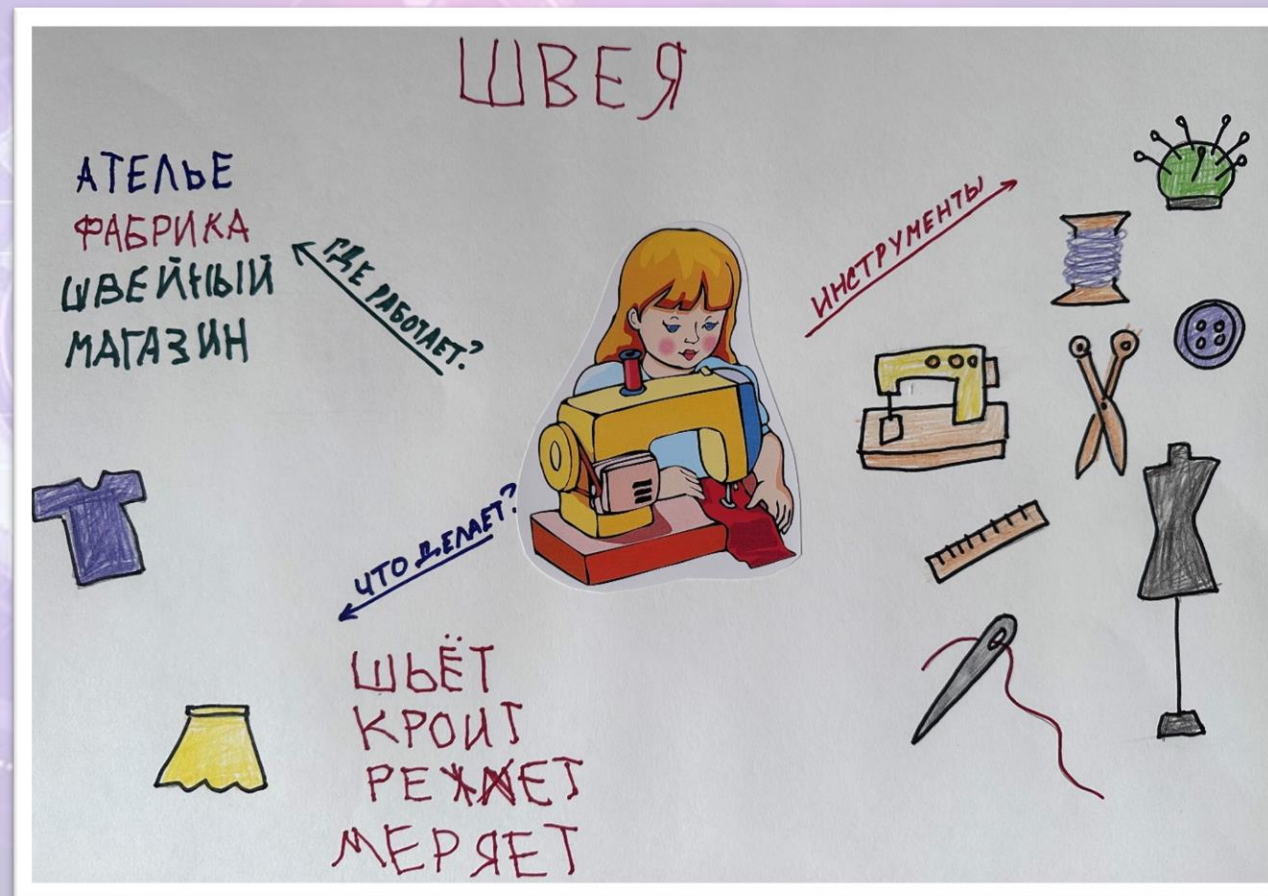 ШВЕЯ
АТЕЛЬЕ
ФАБРИКА
ШВЕЙНЫЙ
МАГАЗИН
ГДЕ РАБОТАЕТ?
ИНСТРУМЕНТЫ
ЧТО ДЕЛАЕТ?
ШЬЁТ
КРОИТ
РЕЖЕТ
МЕРЯЕТ